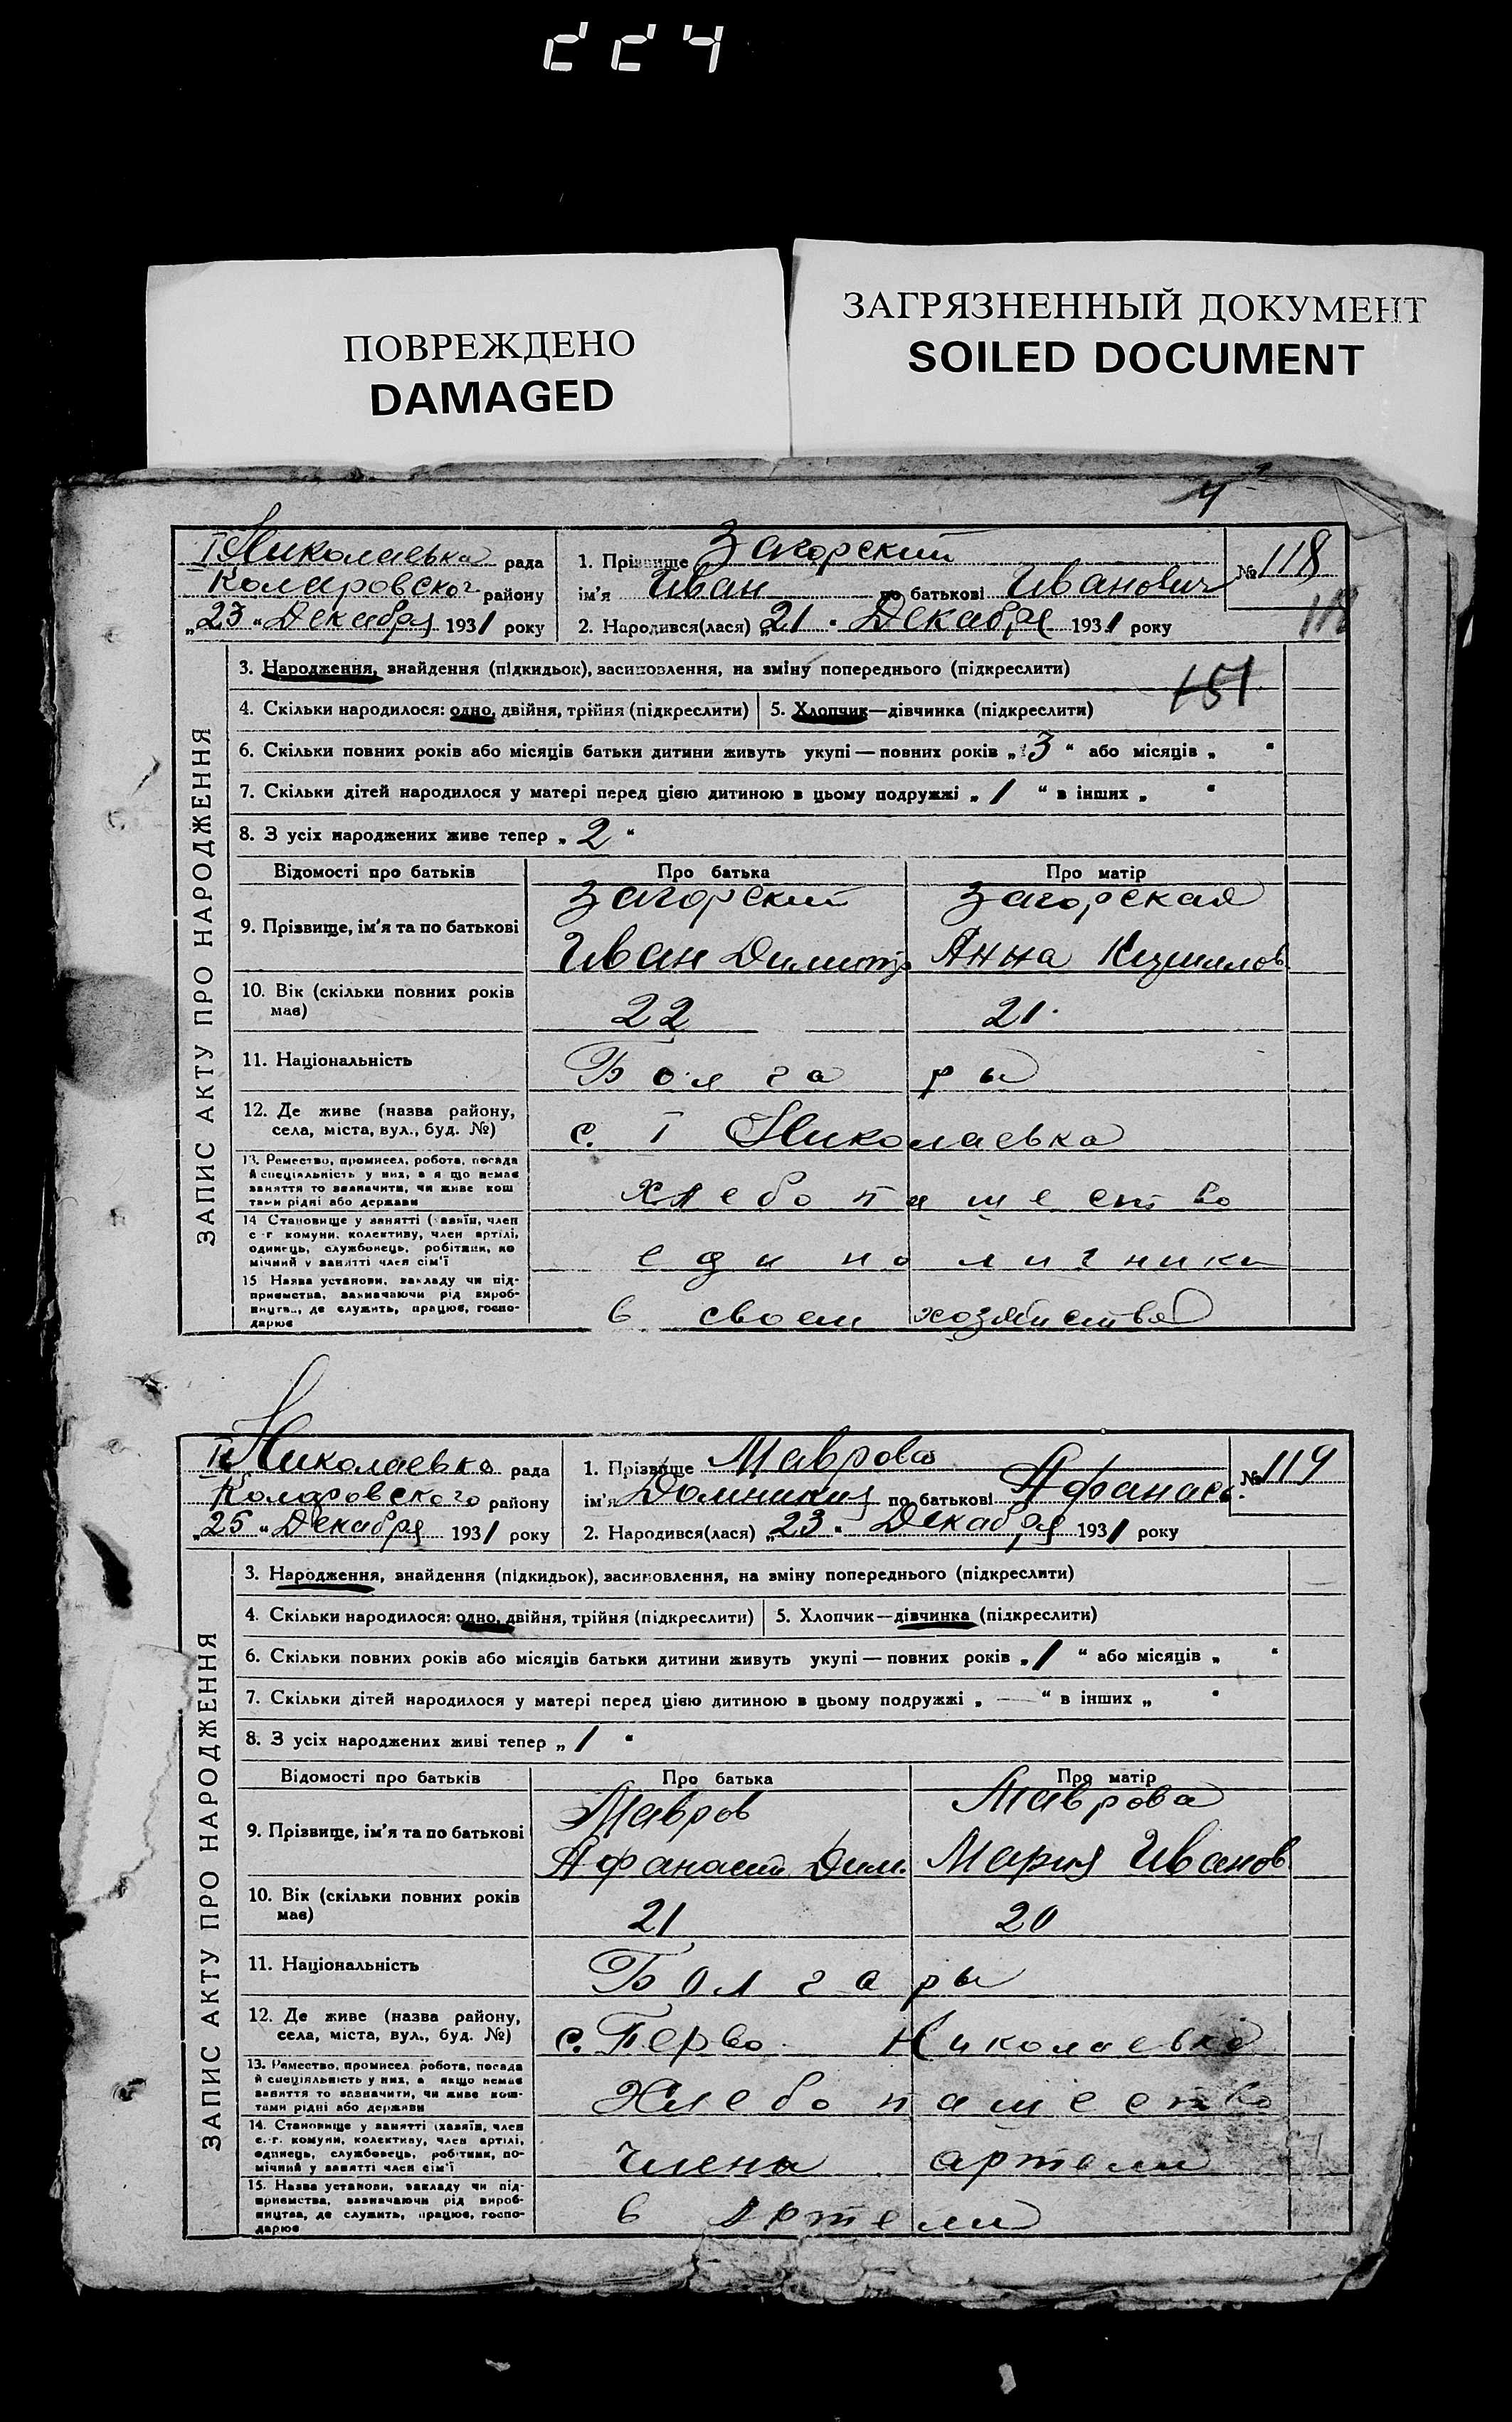 224
ПОВРЕЖДЕНО
DAMAGED
ЗАГРЯЗНЕННЫЙ ДОКУМЕНТ
SOILED DOCUMENT
I Николаевка рада
Коларовског району
„23“ Декабря 1931 року
1. Прізвище Загорский
ім'я Иван по батькові Иванович
2. Народився(лася) „21“ Декабря 1931 року
№ 118
118
151
ЗАПИС АКТУ ПРО НАРОДЖЕННЯ
3. Народження, знайдення (підкидьок), засиновлення, на зміну попереднього (підкреслити)
4. Скільки народилося: одно, двійня, трійня (підкреслити)
5. Хлопчик—дівчинка (підкреслити)
6. Скільки повних років або місяців батьки дитини живуть укупі — повних років „3“ або місяців „ “
7. Скільки дітей народилося у матері перед цією дитиною в цьому подружжі „1“ в інших „ “
8. З усіх народжених живе тепер „2“
Відомості про батьків Про батька Про матір
9. Прізвище, ім'я та по батькові
Загорский Загорская
Иван Димитр Анна
10. Вік (скільки повних років
має)
22 21
11. Національність Болгары
12. Де живе (назва району,
села, міста, вул., буд. №)
с. I Николаевка
13. Ремество, промисел, робота, посада
й спеціяльність у них, а я що немає
заняття то зазначити, чи живе кош
тами рідні або держави
хлебопашество
14 Становище у занятті (хазяїн, член
с-г комуни, колективу, член артілі,
одинець, службовець, робітник, по
мічний у занятті член сім'ї
единоличники
15 Назва установи, закладу чи під-
приємства, зазначаючи рід вироб-
ництва, де служить, працює, госпо-
дарює
в своем хозяйстве
I Николаевка рада
Коларовского району
„25“ Декабря 1931 року
1. Прізвище Маврова
ім'я Домникия по батькові Афанась.
2. Народився(лася) „23“ Декабря 1931 року
№ 119
ЗАПИС АКТУ ПРО НАРОДЖЕННЯ
3. Народження, знайдення (підкидьок), засиновлення, на зміну попереднього (підкреслити)
4. Скільки народилося: одно, двійня, трійня (підкреслити)
5. Хлопчик—дівчинка (підкреслити)
6. Скільки повних років або місяців батьки дитини живуть укупі — повних років „1“ або місяців „ “
7. Скільки дітей народилося у матері перед цією дитиною в цьому подружжі „—“ в інших „ “
8. З усіх народжених живі тепер „1“
Відомості про батьків Про батька Про матір
9. Прізвище, ім'я та по батькові
Мавров Маврова
Афанасий Дим. Мария Иванов
10. Вік (скільки повних років
має)
21 20
11. Національність Болгары
12. Де живе (назва району,
села, міста, вул., буд. №)
с. Перво Николаевка
13. Ремество, промисел робота, посада
й спеціяльність у них, а якщо немає
заняття то зазначити, чи живе кош-
тами рідні або держави
Хлебопашество
14. Становище у занятті (хазяїн, член
с.-г. комуни, колективу, член артілі,
одинець, службовець, робітник, по-
мічний у занятті член сім'ї
члены артели
15. Назва установи, закладу чи під-
приємства, зазначаючи рід вироб-
ництва, де служить, працює, госпо-
дарює
в Артели